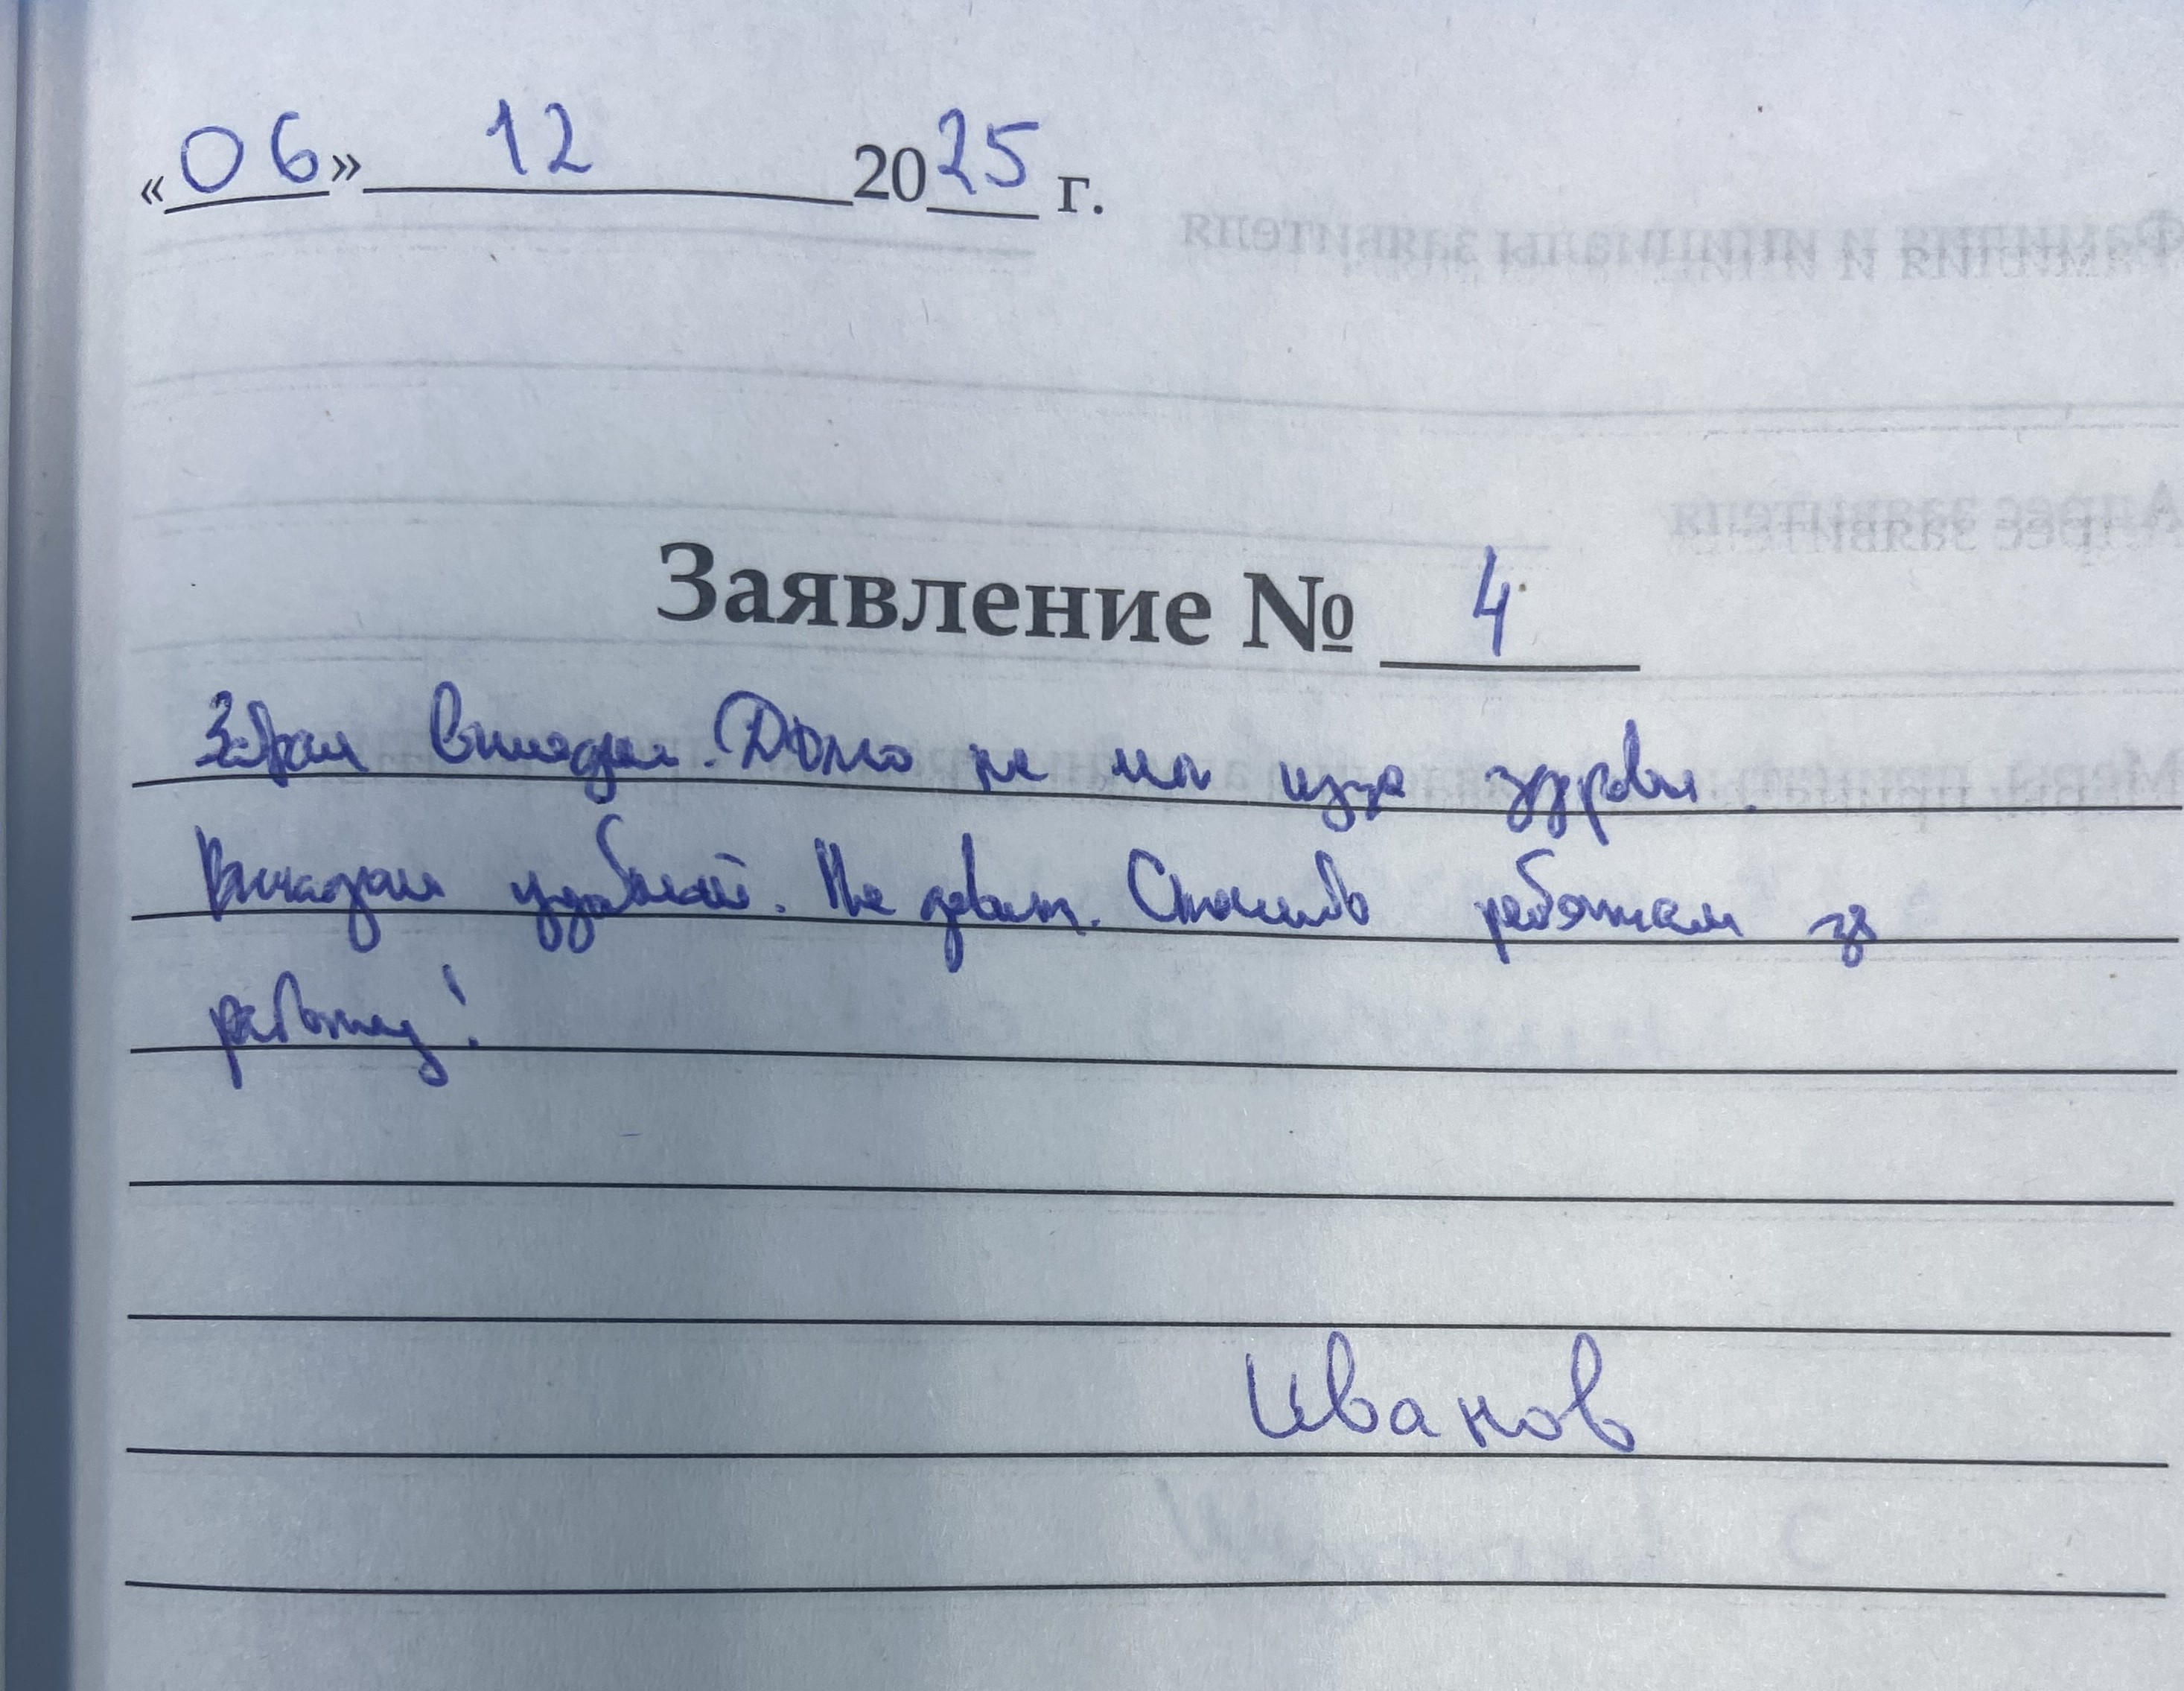 «06» 12 2025 г.
Заявление № 4
Забрал вкладыш. Долго не мог из-за здоровья.
Вкладыш удобный. Не давит. Спасибо ребятам за
работу!
Иванов